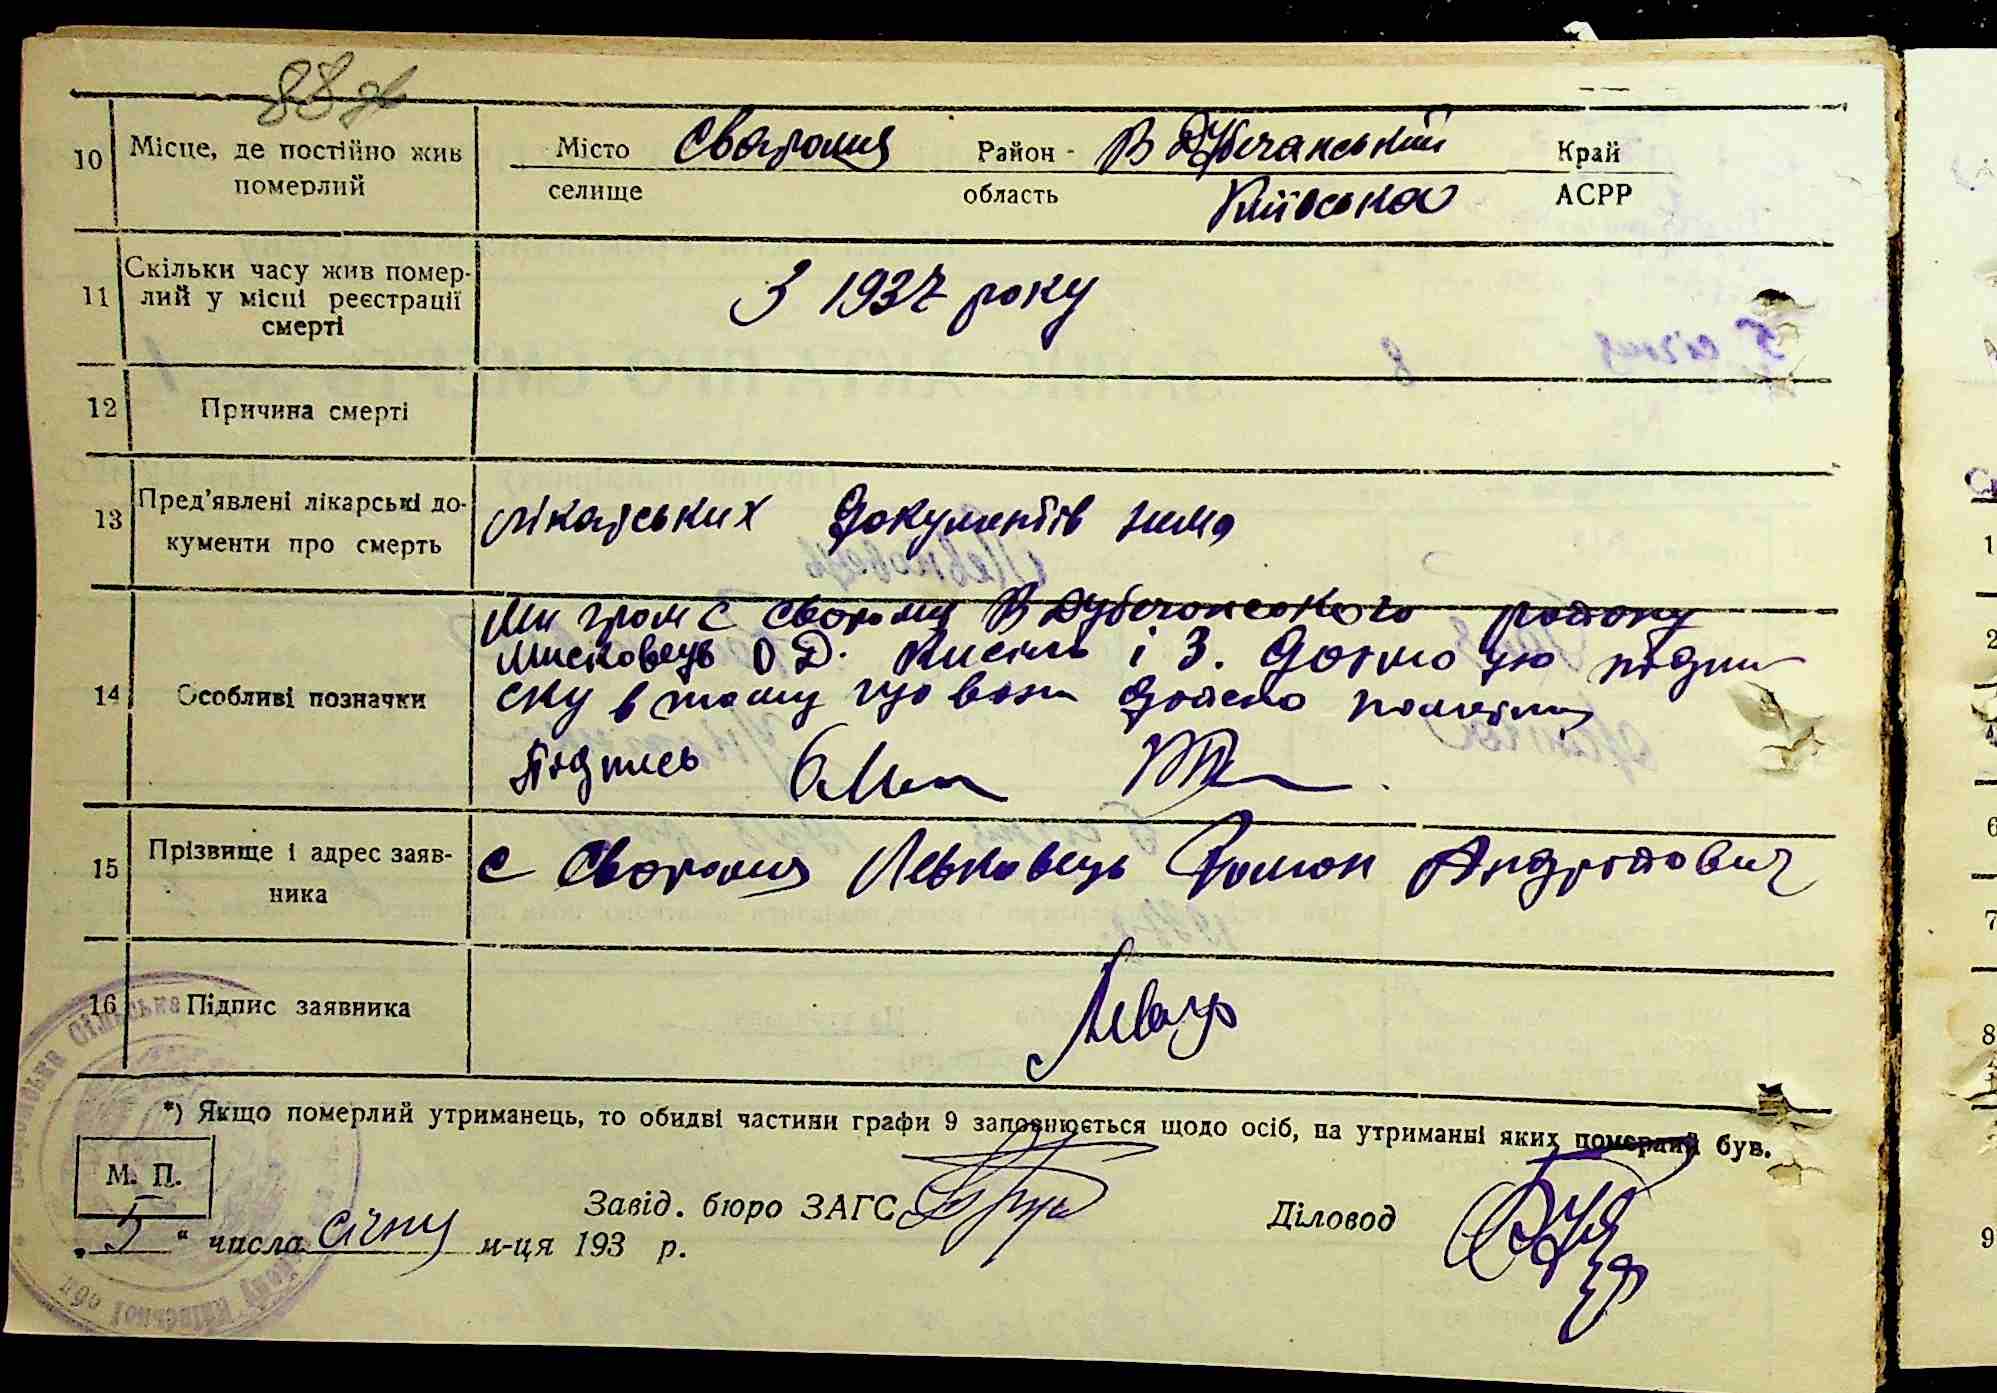 88 зв
10 Місце, де постійно жив померлий
Місто Сваромя Район В Дубечанський Край
селище область Київська АСРР
11 Скільки часу жив помер-
лий у місці реєстрації
смерті
З 1937 року
12 Причина смерті
13 Пред'явлені лікарські до-
кументи про смерть
лікарських документів нима
14 Особливі позначки
Ми гром с Сваромя В Дубечанського району
О Д. Кисіль і З. даємо цю підпи
ску в тому що вона дойсно померла
Підпись
15 Прізвище і адрес заяв-
ника
с Сваромя Левковець Роман Андрійович
16 Підпис заявника
*) Якщо померлий утриманець, то обидві частини графи 9 заповнюється щодо осіб, на утриманні яких померлий був.
М. П.
Завід. бюро ЗАГС
Діловод
„ 5 “ числа січня м-ця 193 р.